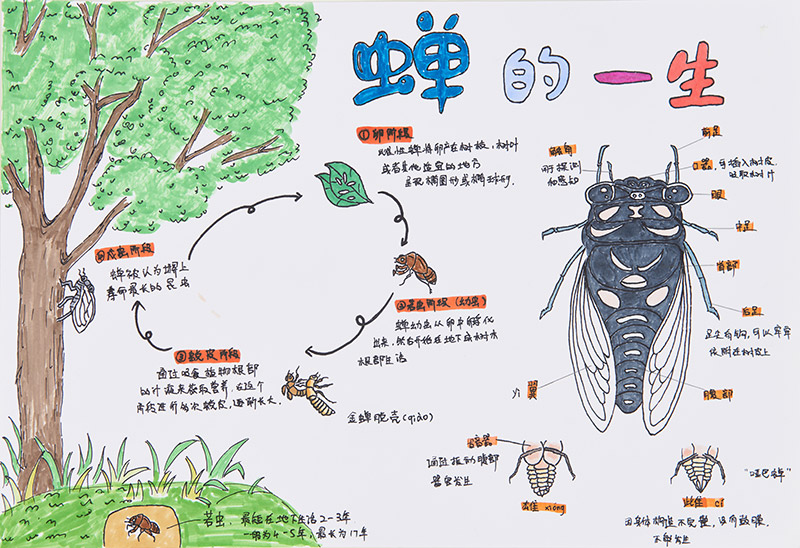 蝉的一生
①卵阶段
以雌性蝉将卵产在树枝、树叶
或者其他适宜的地方
呈现椭圆形或椭球形.
②若虫阶段(幼虫)
蝉幼虫从卵中孵化
出来,然后开始在地下或树木
根部生活
③蜕皮阶段
通过吸食植物根部
的汁液来获取营养,在这个
阶段进行多次蜕皮,逐渐长大.
金蝉脱壳(qiào)
④成虫阶段
蝉被认为世界上
寿命最长的昆虫
若虫:最短在地下生活2-3年
一般为4-5年,最长为17年
触角
用于探测
和感知
前足
口器,可插入树皮
吸取树汁
眼
中足
背部
后足
足上有钩,可以牢牢
依附在树皮上
腹部
翼
发音器
通过振动腹部
器官发生
雄 xióng
雌 cí
"哑巴蝉"
因身体构造不完整,没有鼓膜.
不能发生